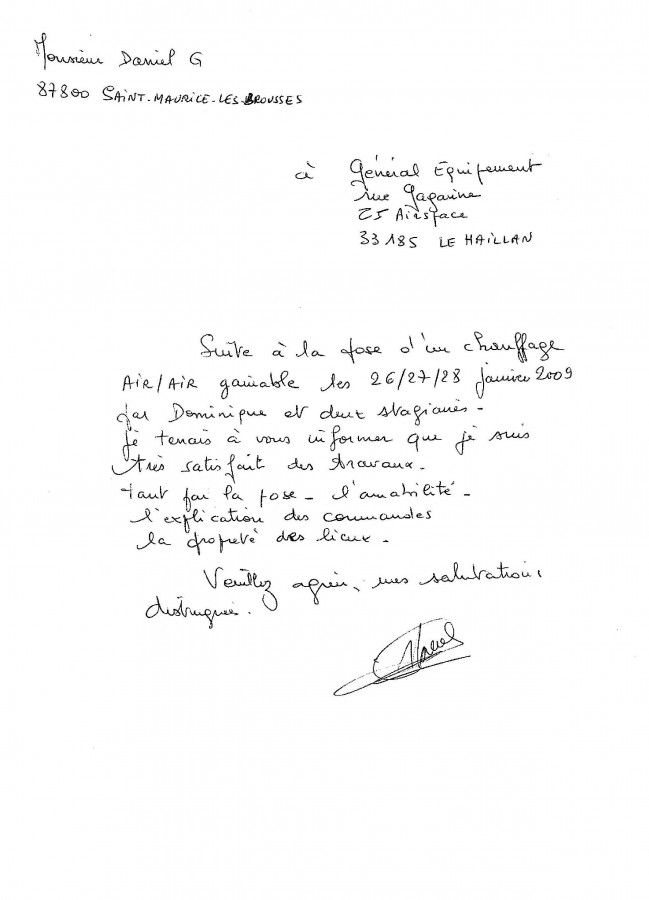 Monsieur Daniel G
87800 SAINT-MAURICE-LES-BROUSSES
à Général Equipement
rue Gagarine
Z5 Airspace
33185 LE HAILLAN
Suite à la pose d'un chauffage
AIR/AIR gainable les 26/27/28 janvier 2009
par Dominique et deux stagiaires -
je tenais à vous informer que je suis
très satisfait des travaux.
tant par la pose - l'amabilité -
l'explication des commandes
la propreté des lieux -
Veuillez agréer, mes salutations
distinguées.